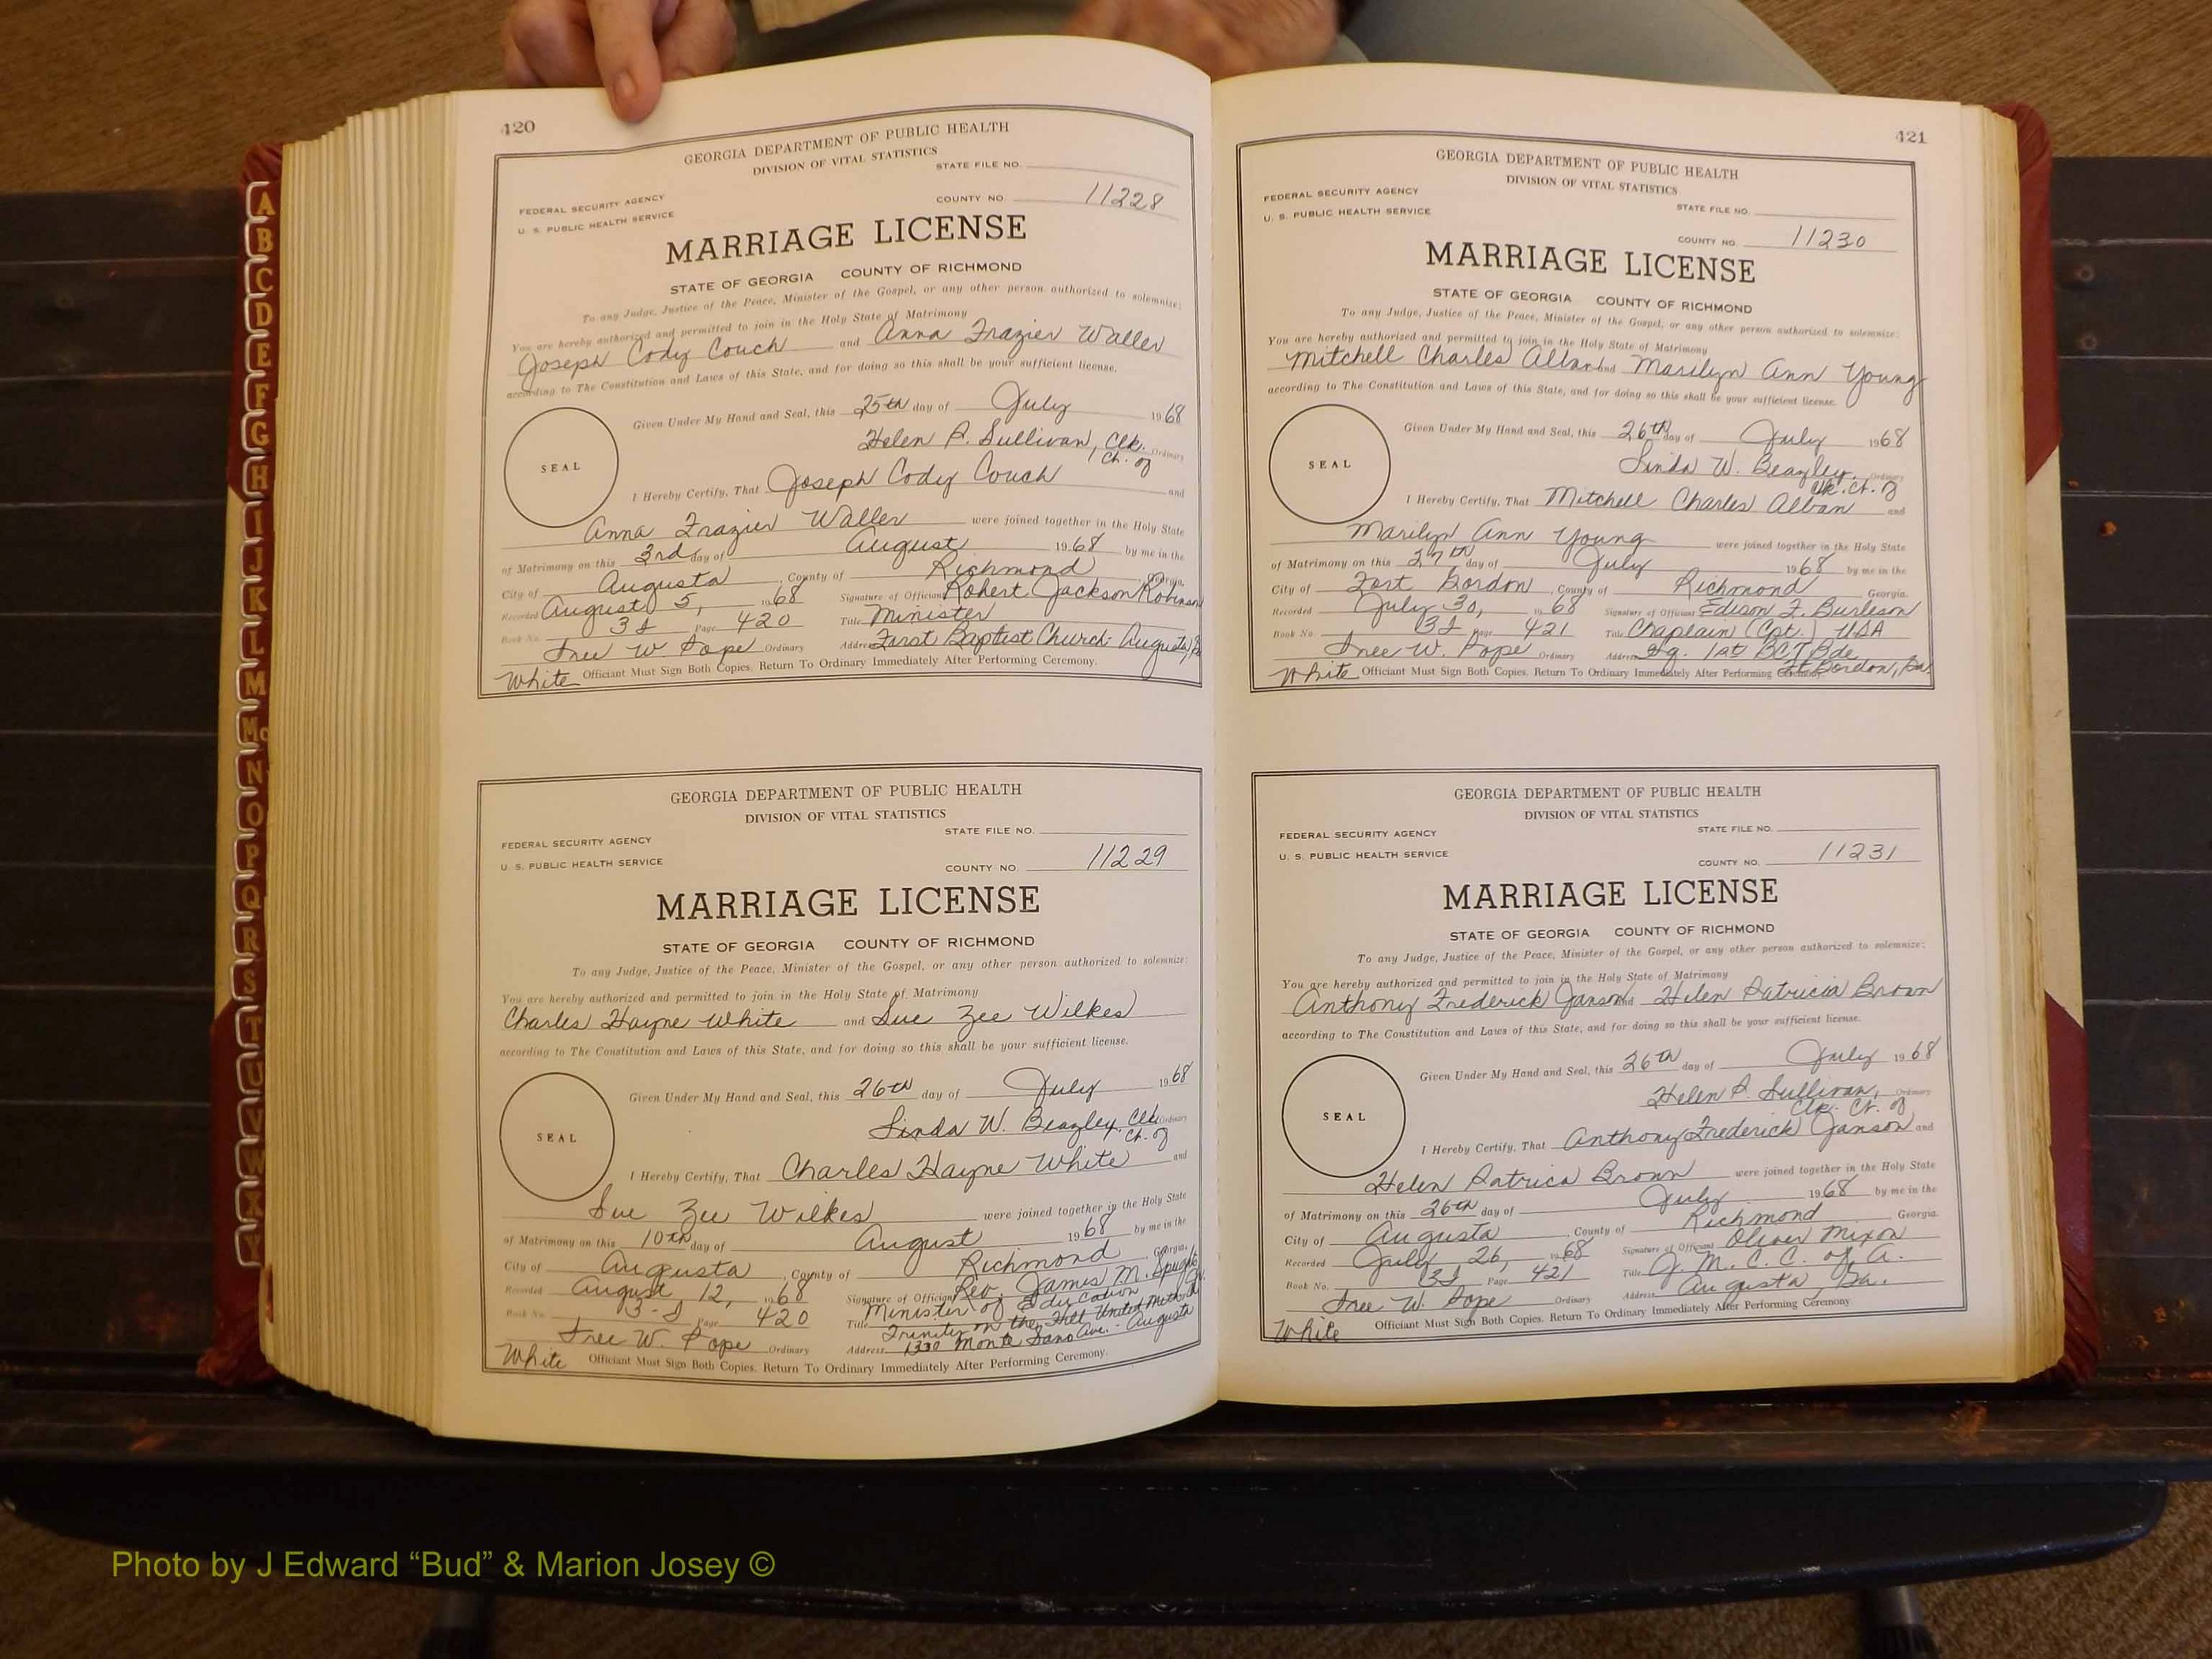 A
B
C
D
E
F
G
H
I
J
K
L
M
Mc
N
O
P
Q
R
S
T
U
V
W
X
Y
420
GEORGIA DEPARTMENT OF PUBLIC HEALTH
DIVISION OF VITAL STATISTICS
STATE FILE NO.
FEDERAL SECURITY AGENCY
COUNTY NO. 11228
U. S. PUBLIC HEALTH SERVICE
MARRIAGE LICENSE
STATE OF GEORGIA COUNTY OF RICHMOND
To any Judge, Justice of the Peace, Minister of the Gospel, or any other person authorized to solemnize:
You are hereby authorized and permitted to join in the Holy State of Matrimony
Joseph Cody Couch and Anna Frazier Waller
according to The Constitution and Laws of this State, and for doing so this shall be your sufficient license.
Given Under My Hand and Seal, this 25th day of July 1968
Helen P. Sullivan, Clk. Ordinary
Ct. of
SEAL
I Hereby Certify, That Joseph Cody Couch and
Anna Frazier Waller were joined together in the Holy State
of Matrimony on this 3rd day of August 1968 by me in the
City of Augusta, County of Richmond, Georgia.
Recorded August 5, 1968 Signature of Official Robert Jackson Robinson
Book No. 3J Page 420 Title Minister
Free W. Pope Ordinary Address First Baptist Church - Augusta, Ga
White Officiant Must Sign Both Copies. Return To Ordinary Immediately After Performing Ceremony.
GEORGIA DEPARTMENT OF PUBLIC HEALTH
DIVISION OF VITAL STATISTICS
STATE FILE NO.
FEDERAL SECURITY AGENCY
U. S. PUBLIC HEALTH SERVICE
COUNTY NO. 11229
MARRIAGE LICENSE
STATE OF GEORGIA COUNTY OF RICHMOND
To any Judge, Justice of the Peace, Minister of the Gospel, or any other person authorized to solemnize:
You are hereby authorized and permitted to join in the Holy State of Matrimony
Charles Hayne White and Sue Zee Wilkes
according to The Constitution and Laws of this State, and for doing so this shall be your sufficient license.
Given Under My Hand and Seal, this 26th day of July 1968
Linda W. Beazley, Clk Ordinary
Ct. of
SEAL
I Hereby Certify, That Charles Hayne White and
Sue Zee Wilkes were joined together in the Holy State
of Matrimony on this 10th day of August 1968 by me in the
City of Augusta, County of Richmond, Georgia.
Recorded August 12, 1968 Signature of Official Rev. James M.
Book No. 3-J Page 420 Title Minister of Education
Trinity on the Hill United Meth.
Free W. Pope Ordinary Address 1330 Monte Sano Ave. - Augusta
White Officiant Must Sign Both Copies. Return To Ordinary Immediately After Performing Ceremony.
421
GEORGIA DEPARTMENT OF PUBLIC HEALTH
DIVISION OF VITAL STATISTICS
FEDERAL SECURITY AGENCY
STATE FILE NO.
U. S. PUBLIC HEALTH SERVICE
COUNTY NO. 11230
MARRIAGE LICENSE
STATE OF GEORGIA COUNTY OF RICHMOND
To any Judge, Justice of the Peace, Minister of the Gospel, or any other person authorized to solemnize:
You are hereby authorized and permitted to join in the Holy State of Matrimony
Mitchell Charles Alban and Marilyn Ann Young
according to The Constitution and Laws of this State, and for doing so this shall be your sufficient license.
Given Under My Hand and Seal, this 26th day of July 1968
Linda W. Beazley, Ordinary
Clk. Ct. of
SEAL
I Hereby Certify, That Mitchell Charles Alban and
Marilyn Ann Young were joined together in the Holy State
of Matrimony on this 27th day of July 1968 by me in the
City of Fort Gordon, County of Richmond Georgia.
Recorded July 30, 1968 Signature of Official Edison F. Burleson
Book No. 3J Page 421 Title Chaplain (Cpt.) USA
Free W. Pope Ordinary Address Hq. 1st BCT Bde
Ft Gordon, Ga.
White Officiant Must Sign Both Copies. Return To Ordinary Immediately After Performing Ceremony.
GEORGIA DEPARTMENT OF PUBLIC HEALTH
DIVISION OF VITAL STATISTICS
STATE FILE NO.
FEDERAL SECURITY AGENCY
U. S. PUBLIC HEALTH SERVICE
COUNTY NO. 11231
MARRIAGE LICENSE
STATE OF GEORGIA COUNTY OF RICHMOND
To any Judge, Justice of the Peace, Minister of the Gospel, or any other person authorized to solemnize:
You are hereby authorized and permitted to join in the Holy State of Matrimony
Anthony Frederick Janson and Helen Patricia Brown
according to The Constitution and Laws of this State, and for doing so this shall be your sufficient license.
Given Under My Hand and Seal, this 26th day of July 1968
Helen P. Sullivan, Ordinary
Clk. Ct. of
SEAL
I Hereby Certify, That Anthony Frederick Janson and
Helen Patrica Brown were joined together in the Holy State
of Matrimony on this 26th day of July 1968 by me in the
City of Augusta, County of Richmond Georgia.
Recorded July 26, 1968 Signature of Official Oliver Mixon
Book No. 3J Page 421 Title J. M. C. C. of A.
Free W. Pope Ordinary Address Augusta Ga.
White Officiant Must Sign Both Copies. Return To Ordinary Immediately After Performing Ceremony.
Photo by J Edward “Bud” & Marion Josey ©